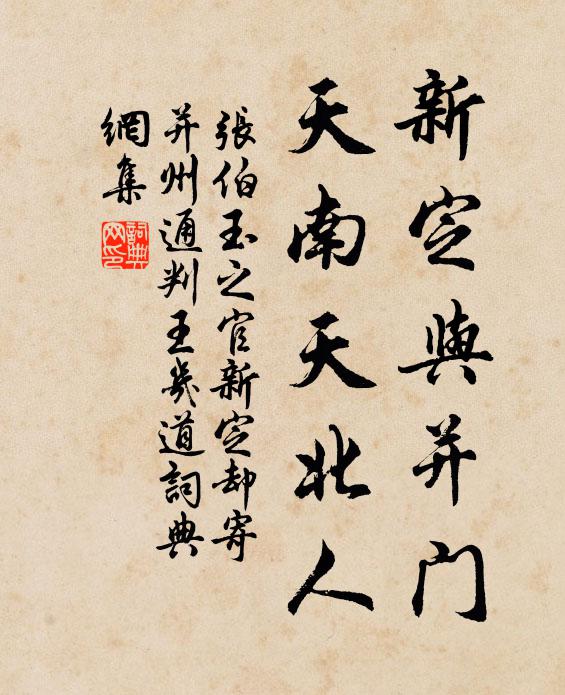 新定與并门
天南天北人
張伯玉之官新定却寄
并州通判王几道詞典
網集
詞典
网印